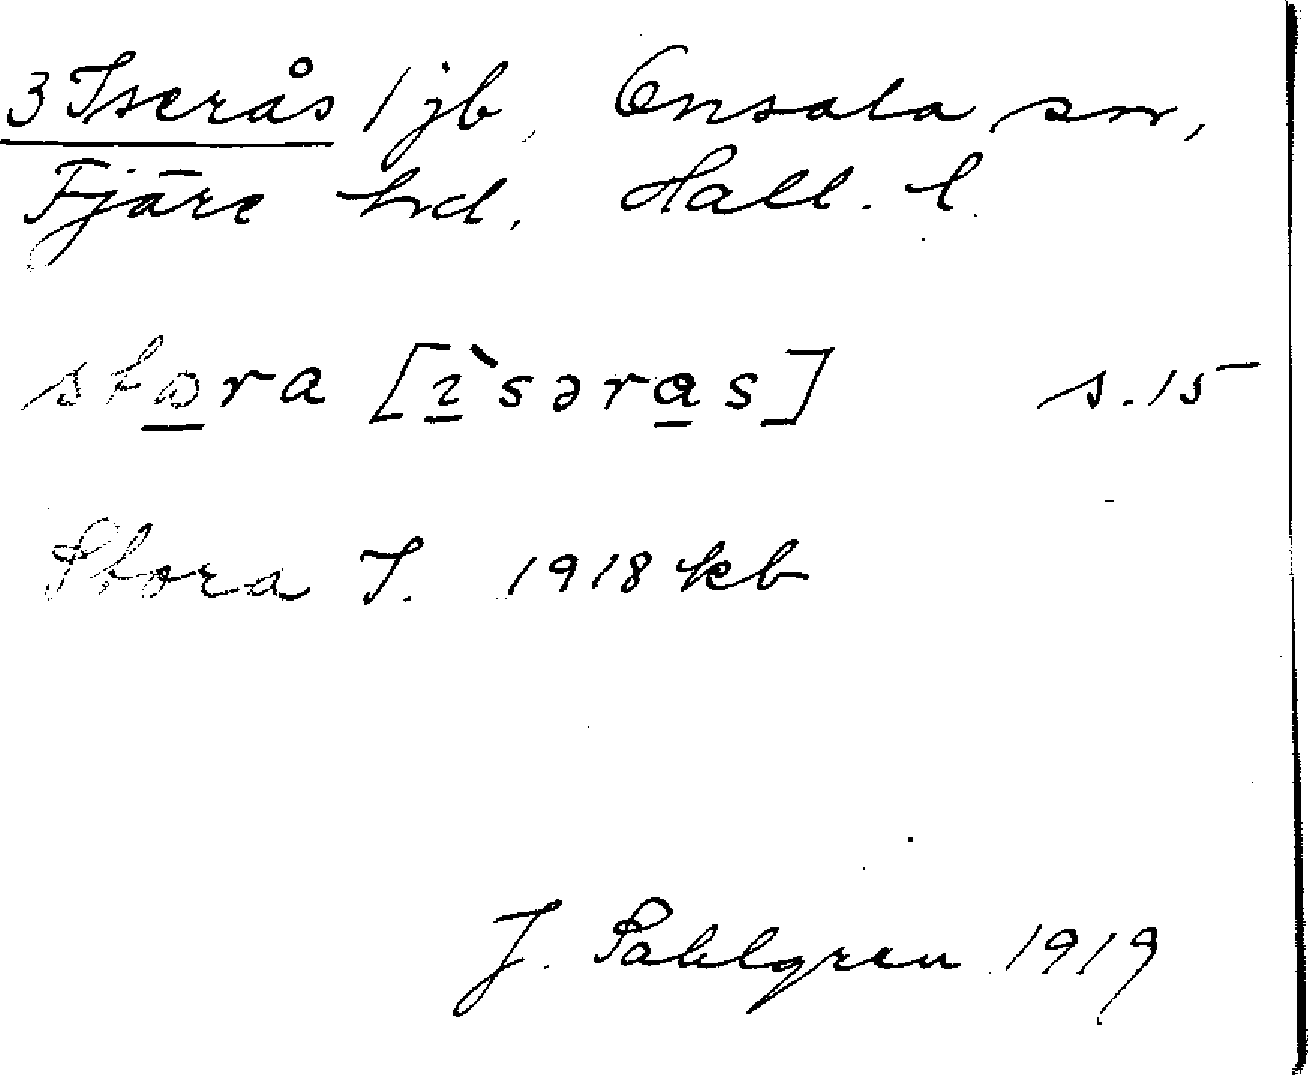 3 Iserås 1 jb, Onsala sn,
Fjäre hd. Hall. l.
stɷra [ı̀səras] s. 15
Stora I. 1918 kb
J. Sahlgren 1919